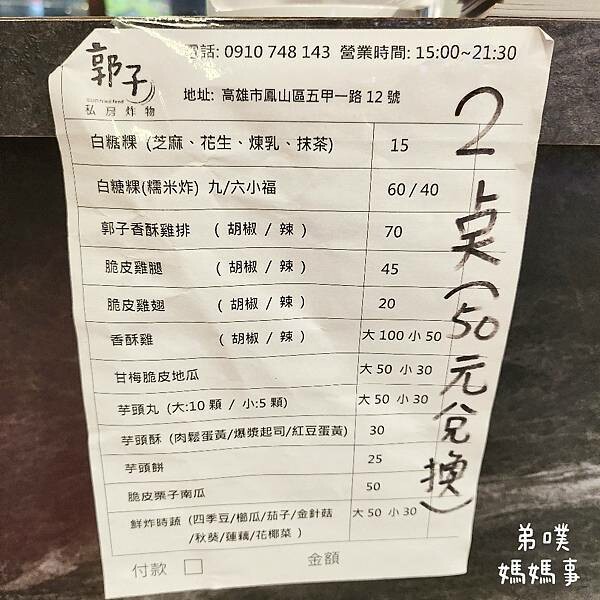 郭子
私房炸物
電話: 0910 748 143 營業時間: 15:00~21:30
地址: 高雄市鳳山區五甲一路 12 號
白糖粿 (芝麻、花生、煉乳、抹茶) 15
白糖粿(糯米炸) 九/六小福 60 / 40
郭子香酥雞排 ( 胡椒 / 辣 ) 70
脆皮雞腿 ( 胡椒 / 辣 ) 45
脆皮雞翅 ( 胡椒 / 辣 ) 20
香酥雞 ( 胡椒 / 辣 ) 大 100 小 50
甘梅脆皮地瓜 大 50 小 30
芋頭丸 (大:10 顆 / 小:5 顆) 大 50 小 30
芋頭酥 (肉鬆蛋黃/爆漿起司/紅豆蛋黃) 30
芋頭餅 25
脆皮栗子南瓜 50
鮮炸時蔬 (四季豆/櫛瓜/茄子/金針菇 大 50 小 30
/秋葵/蓮藕/花椰菜 )
付款 □ 金額
2点(50元兌換)
弟噗
媽媽事